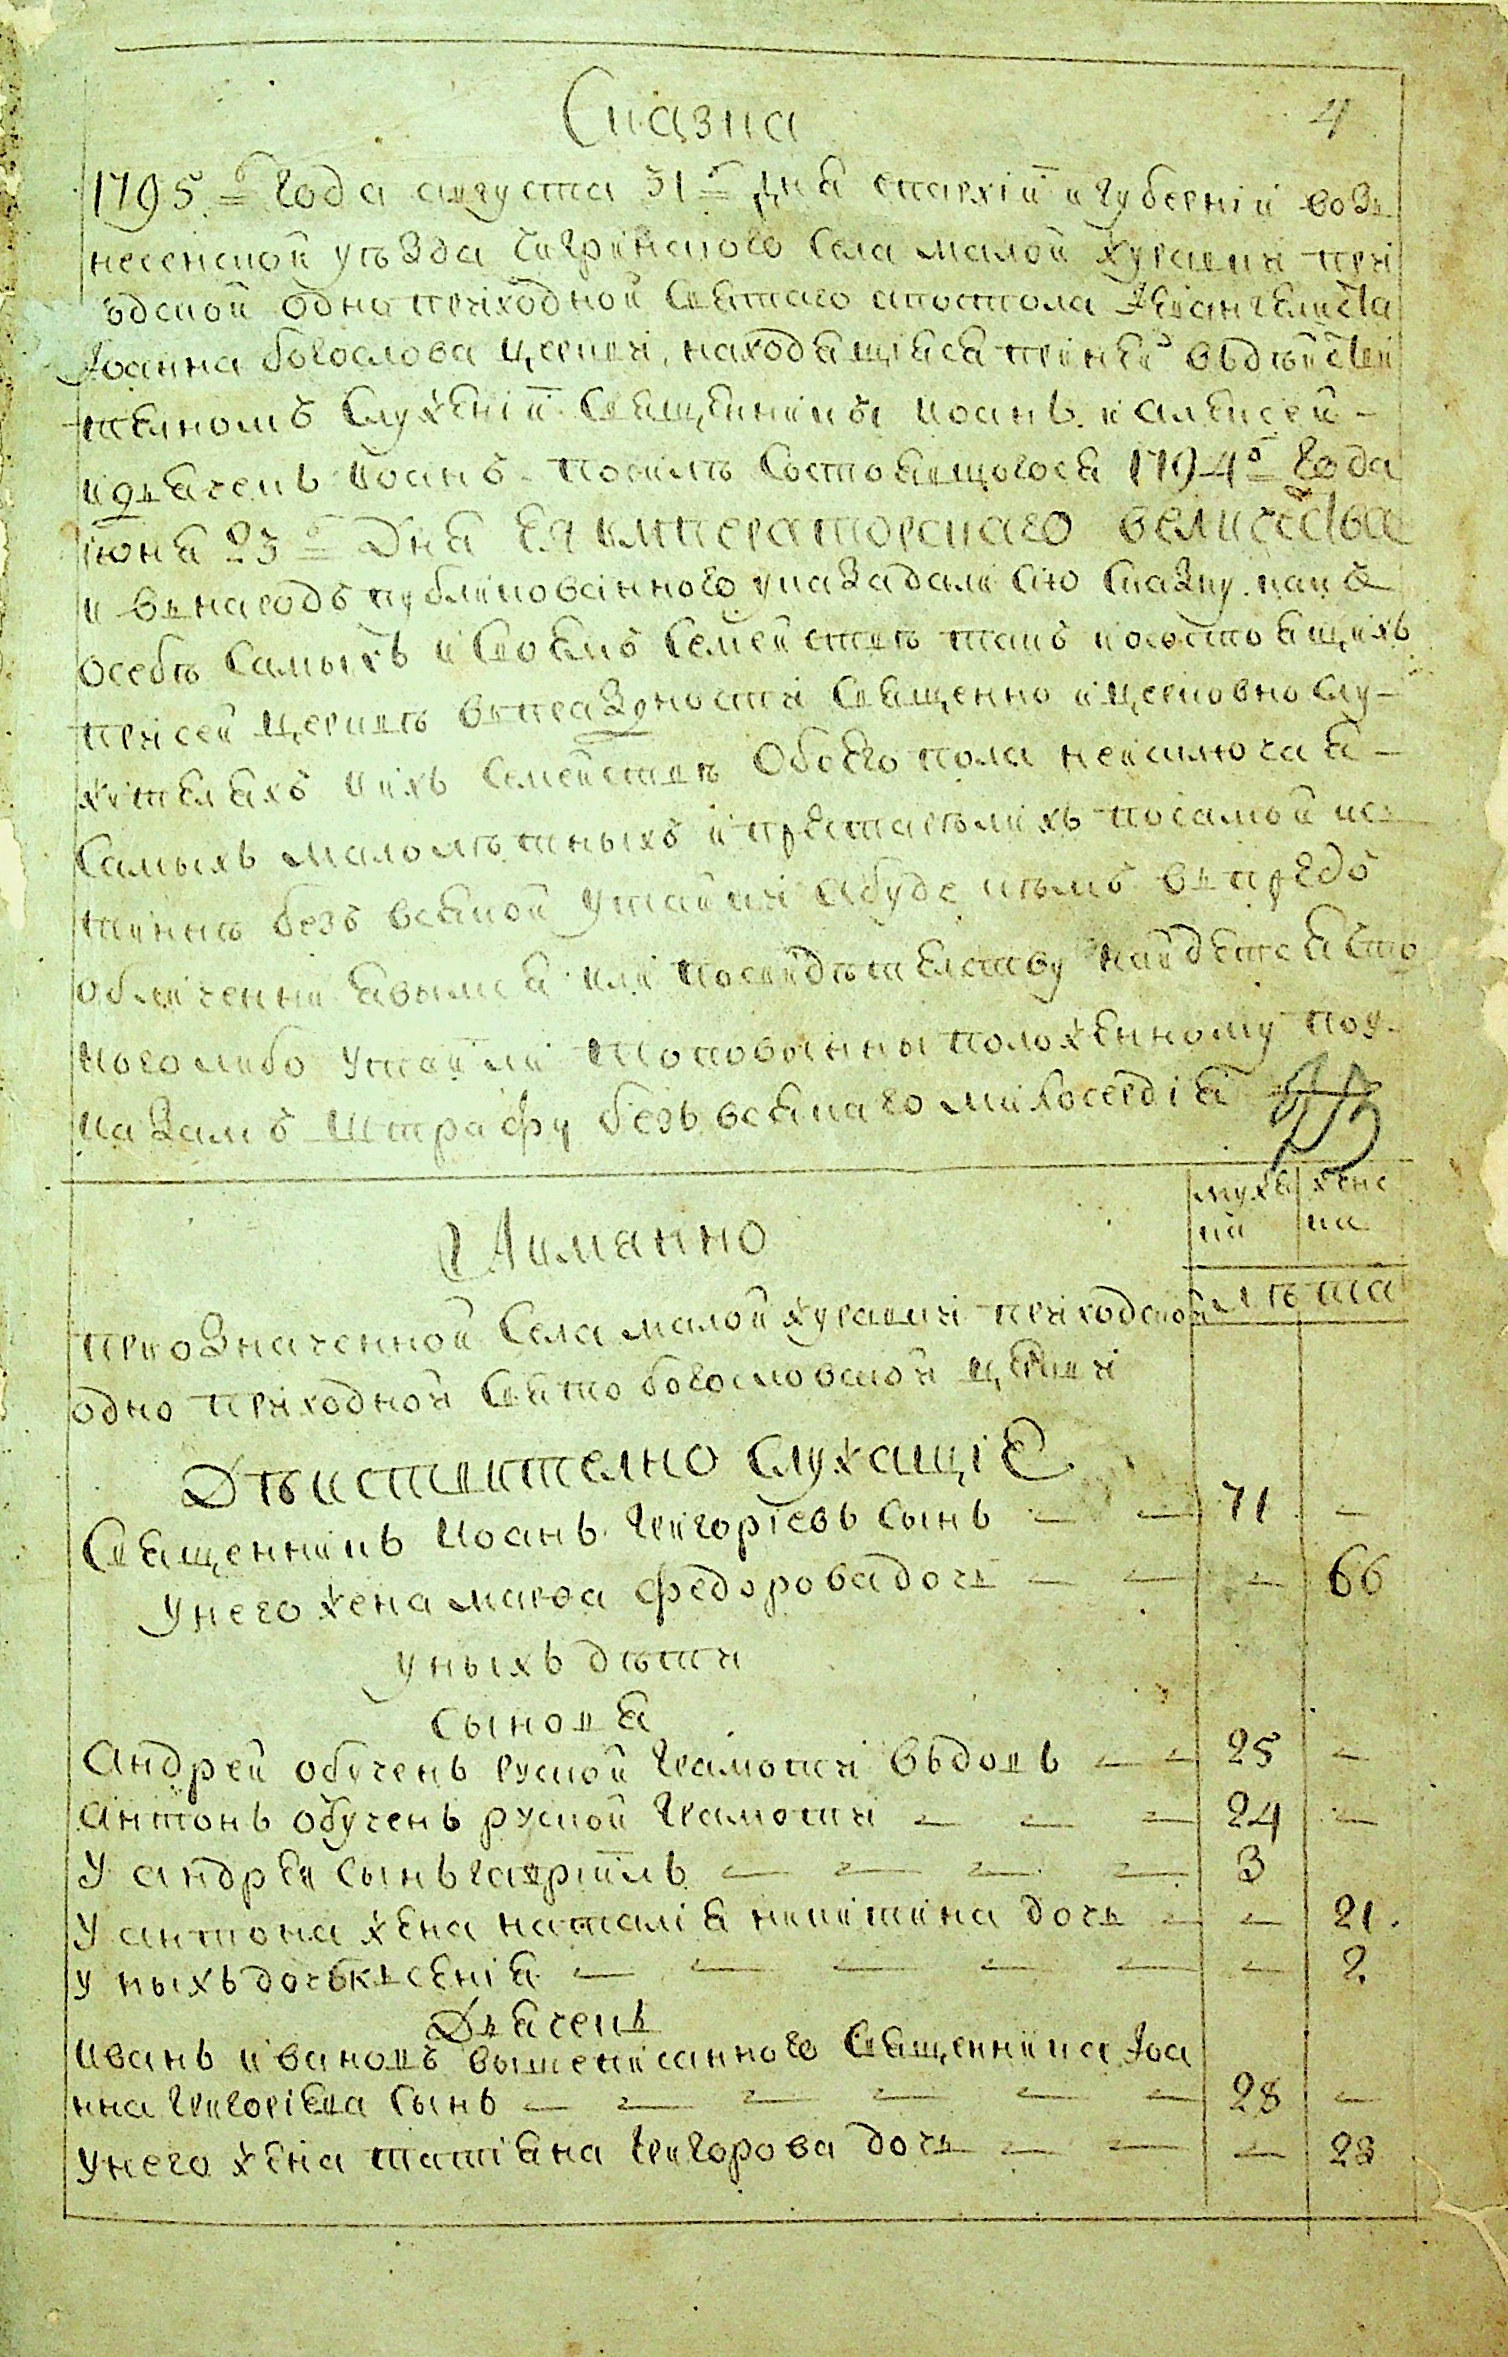 Сказка
4
1795го года августа 31го дня епархии и губернии воз
несенской уезда Чигринского села малой Журавки при
ходской одно приходной святаго апостола Евангелиста
Иоанна богослова церкви, находящияся при ней в действи
телномъ служении священники Иоанъ и алексей
и дьячекъ Иоанъ посилъ состоявшогося 1794го года
июня 23го дня Ея императорскаго величества
и внародъ публикованного указа дали сию сказку какъ о
особъ самыхъ и своемъ семействѣ такъ и о состоящихъ
при сей церквѣ впраздности священно и церковно слу
жителяхъ и ихъ семействѣ обоего пола неисключая
самыхъ малолѣтныхъ и престарѣлихъ по самой ис
тиннѣ безъ всякой утайки а буде кѣмъ впредъ
обличенни явымся или посвидѣтелству найдется что
кого либо утаили то повынны положенному по у
казамъ штрафу безъ всякаго милосердия
мужъ женс
ка ка
Аимянно
лѣта
при означенной села малой Журавки приходской
одно приходной свято богословской церкви
Дѣиствително служащие
Священникъ Иоанъ Григориевъ сынъ — — 71 —
У него жена марфа федорова дочь — — — 66
у ныхъ дѣти
сыновя
Андрей обученъ руской грамоти вдовъ — — 25 —
Антонъ обученъ руской грамоти — — — 24 —
У андрея сынъ гавриилъ — — — — 3
У антона жена наталия никитина дочь — — 21.
у ныхъ дочь ксения — — — — — — 2
Дьячекъ
Иванъ ивановъ вышеписанного священника Иоа
нна Григориева сынъ — — — — — — 28 —
У него жена татияна григорова дочь — — — 23